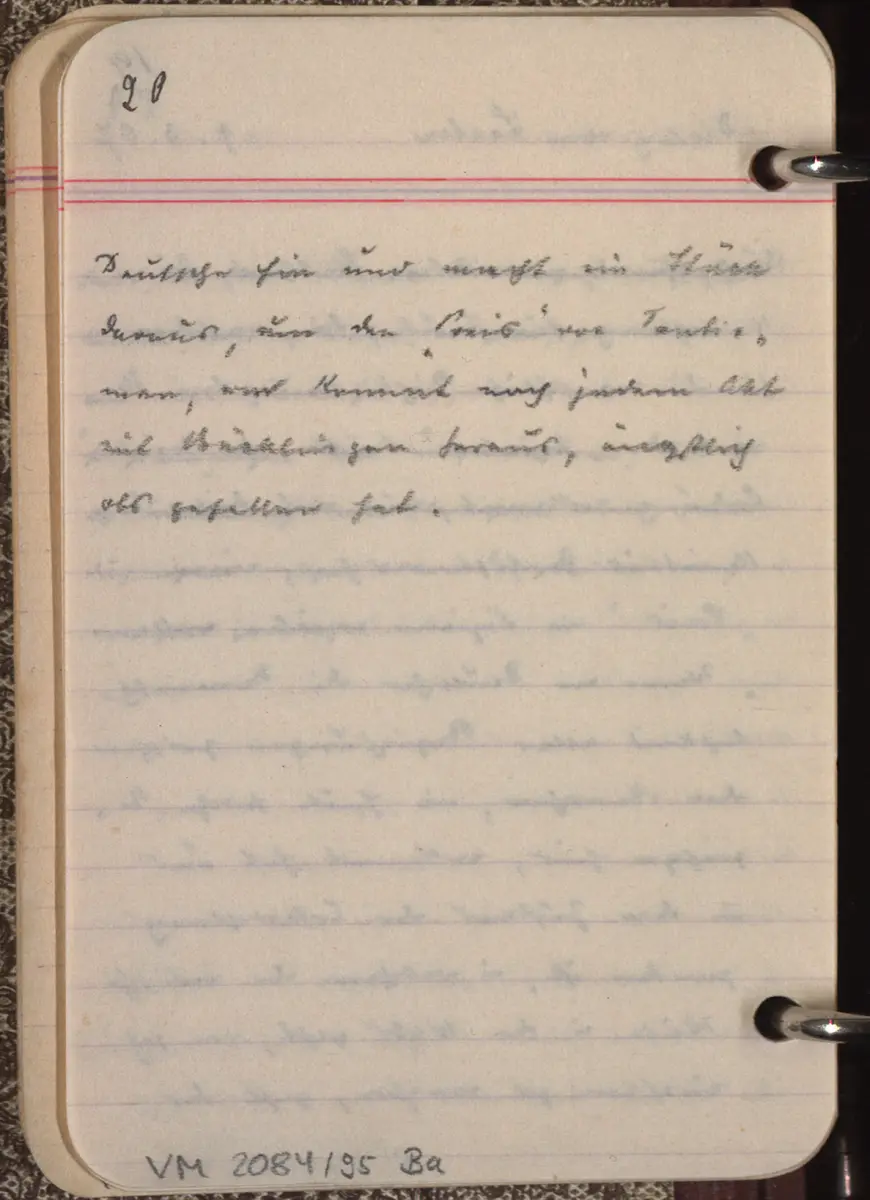 20
Deutsche hin und macht ein Stück
daraus, um den „Preis“ von Tantie-
men, und kommt nach jedem Akt
mit Bücklingen heraus, ängstlich
obs gefallen hat.
VM 2084/95 Ba